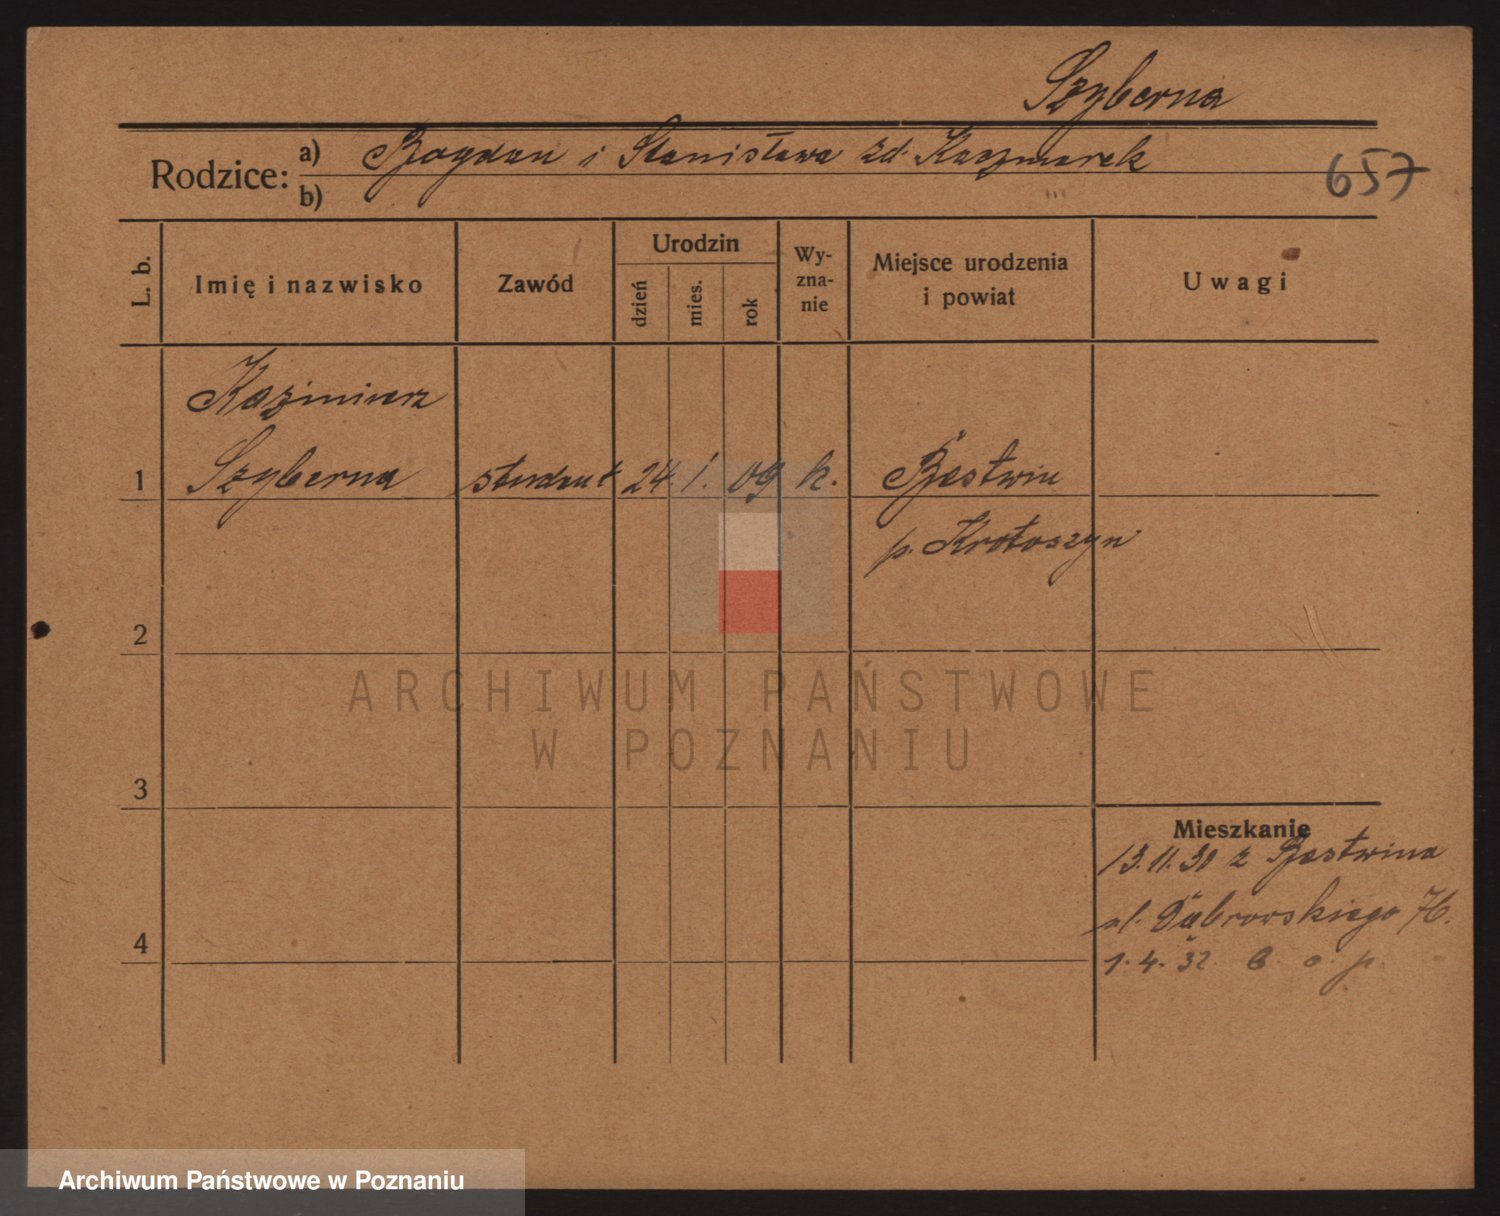 Szyberna
Rodzice: a) Bogdan i Stanisława zd. Kaczmarek
b)
657
L. b.
Imię i nazwisko
Zawód
Urodzin
dzień
mies.
rok
Wy-
zna-
nie
Miejsce urodzenia
i powiat
Uwagi
Kazimierz
1 Szyberna student 24. 1. 09 k. Bestwin
p. Krotoszyn
2
ARCHIWUM PAŃSTWOWE
W POZNANIU
3
Mieszkanie
13.11.30 z Bestwina
ul. Dąbrowskiego 76.
4
1.4.32. B. o. p.
Archiwum Państwowe w Poznaniu